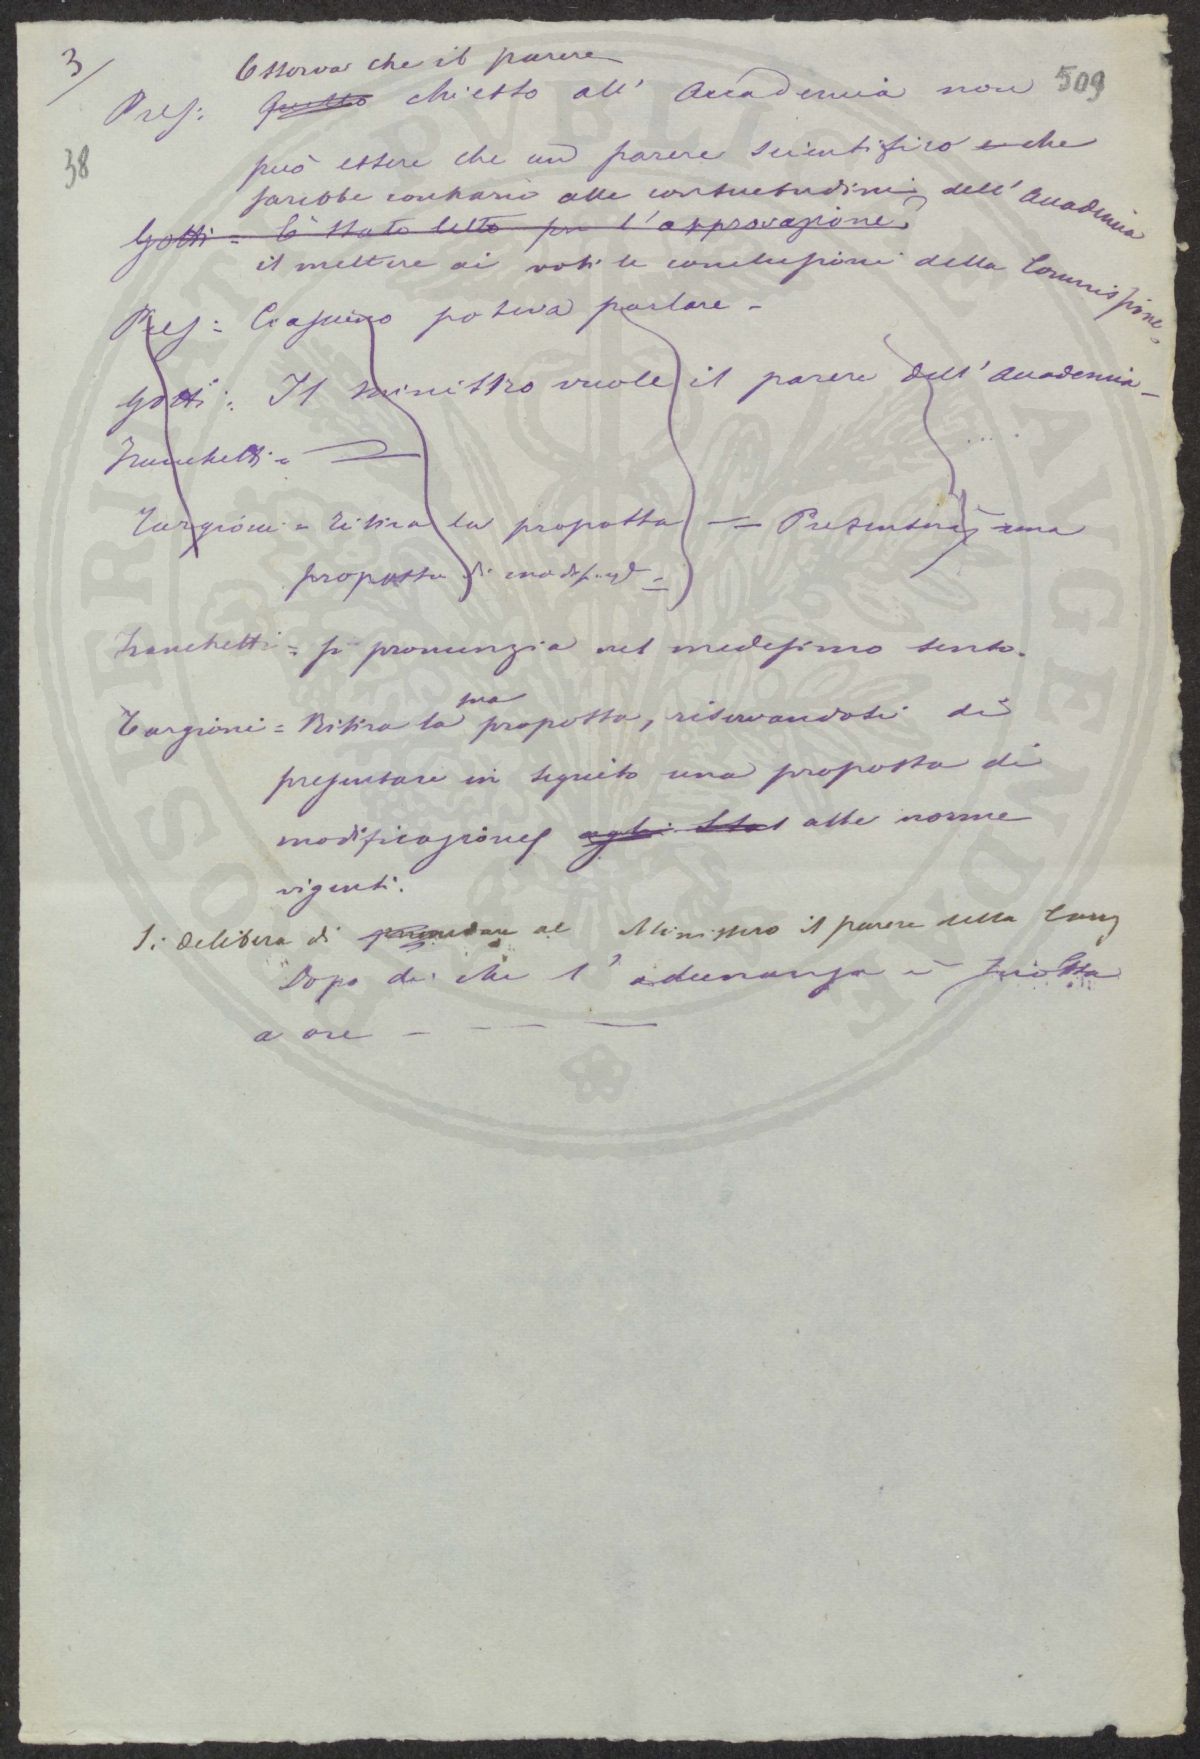 3/
Osserva che il parere
509
Pres: Quello chiesto all' Accademia non
38
può essere che un parere scientifico e che
sarebbe contrario alle consuetudini dell' Accademia
Gotti = È stato letto per l'approvazione.
il mettere ai voti le conclusioni della Commissione.
Pres: Ciascuno poteva parlare -
Gotti: Il ministro vuole il parere dell' Accademia -
Franchetti =
Targioni = ritira la proposta — Presenterà una
proposta di
Franchetti = si pronunzia nel medesimo senso.
sua
Targioni = Ritira la proposta, riservandosi di
presentare in seguito una proposta di
modificazione agli Stat alle norme
vigenti.
Si delibera di al Ministero il parere della Comm
Dopo di che l'adunanza è sciolta
a ore - - - —
POSSERIAT PVBLICE AVIGENDA